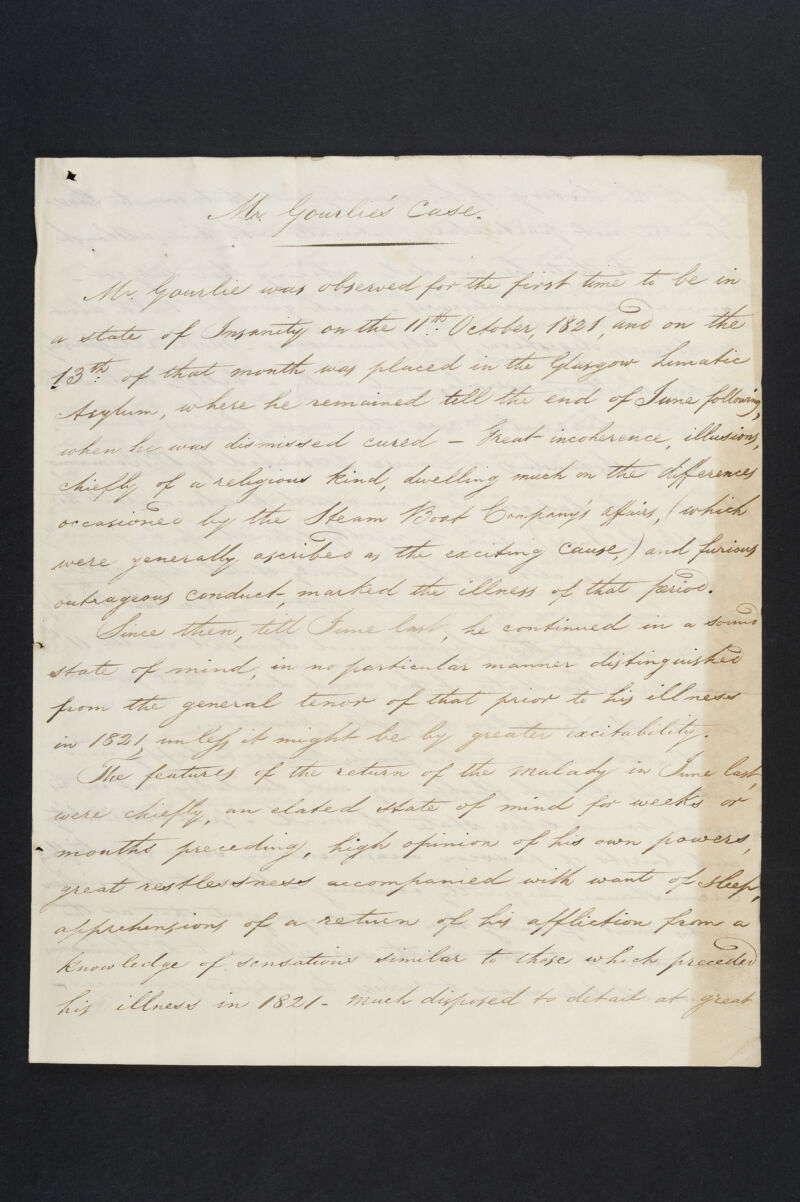 Mr. Gourlie's Case.
Mr. Gourlie was observed for the first time to be in
a state of Insanity on the 11th. October, 1821, and on the
13th. of that month was placed in the Glasgow Lunatic
Asylum, where he remained till the end of June following,
when he was dismissed cured – Great incoherence, illusions,
chiefly of a religious kind, dwelling much on the differences
occasioned by the Steam Boat Company's affairs, (which
were generally ascribed as the exciting cause,) and furious
outrageous conduct, marked the illness of that period.
Since then, till June last, he continued in a sound
state of mind, in no particular manner distinguished
from the general tenor of that prior to his illness
in 1821, unless it might be by greater excitability.
The features of the return of the malady in June last,
were chiefly, an elated state of mind for weeks or
months preceding, high opinion of his own powers,
great restlessness accompanied with want of sleep,
apprehensions of a return of his affliction from a
knowledge of sensations similar to those which preceded
his illness in 1821 – much disposed to detail at great